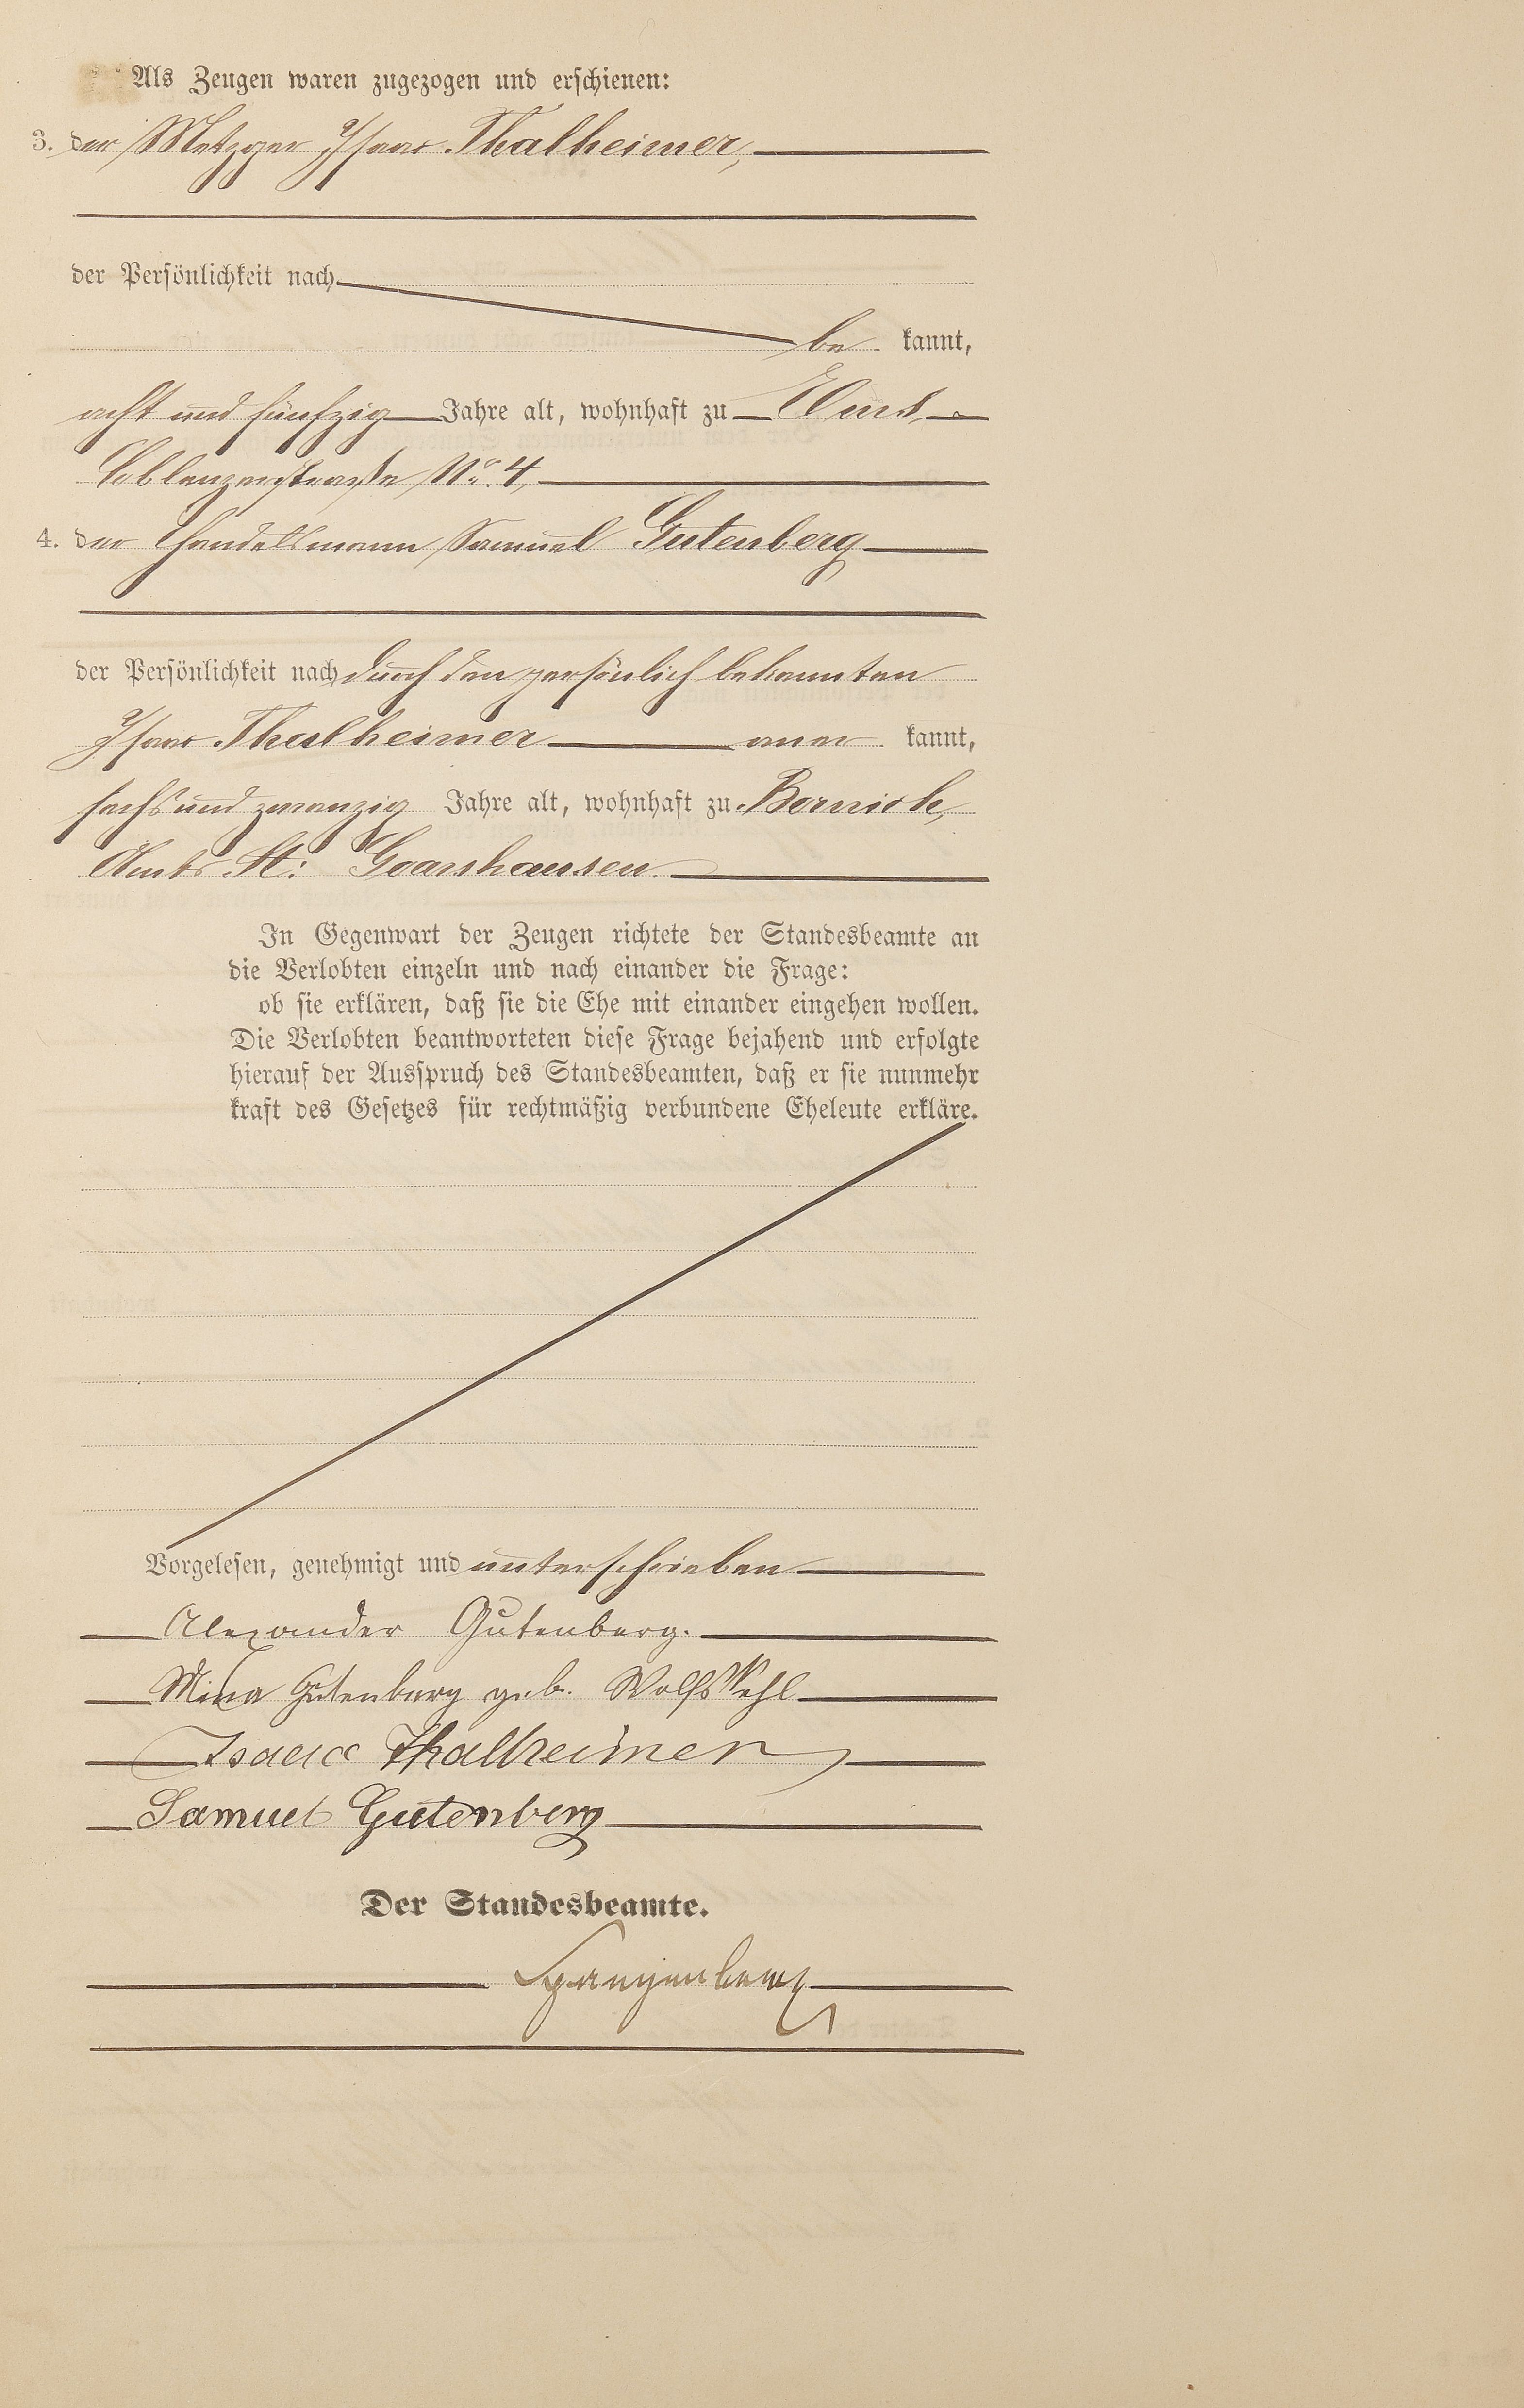 Als Zeugen waren zugezogen und erschienen:
3. der Metzger Isaac Thalheimer,
der Persönlichkeit nach
be kannt,
acht und fünfzig Jahre alt, wohnhaft zu Ems,
Coblenzerstraße No. 4,
4. der Handelsmann Samuel Gutenberg
der Persönlichkeit nach durch den persönlich bekannten
Isaac Thalheimer aner kannt,
sechs und zwanzig Jahre alt, wohnhaft zu Bornich,
Amts St: Goarshausen.
In Gegenwart der Zeugen richtete der Standesbeamte an
die Verlobten einzeln und nach einander die Frage:
ob sie erklären, daß sie die Ehe mit einander eingehen wollen.
Die Verlobten beantworteten diese Frage bejahend und erfolgte
hierauf der Ausspruch des Standesbeamten, daß er sie nunmehr
kraft des Gesetzes für rechtmäßig verbundene Eheleute erkläre.
Vorgelesen, genehmigt und unterschrieben
Alexander Gutenberg.
Mina Gutenberg geb. Wolfskehl
Isaac Thalheimer
Samuel Gutenberg
Der Standesbeamte.
Spangenberg